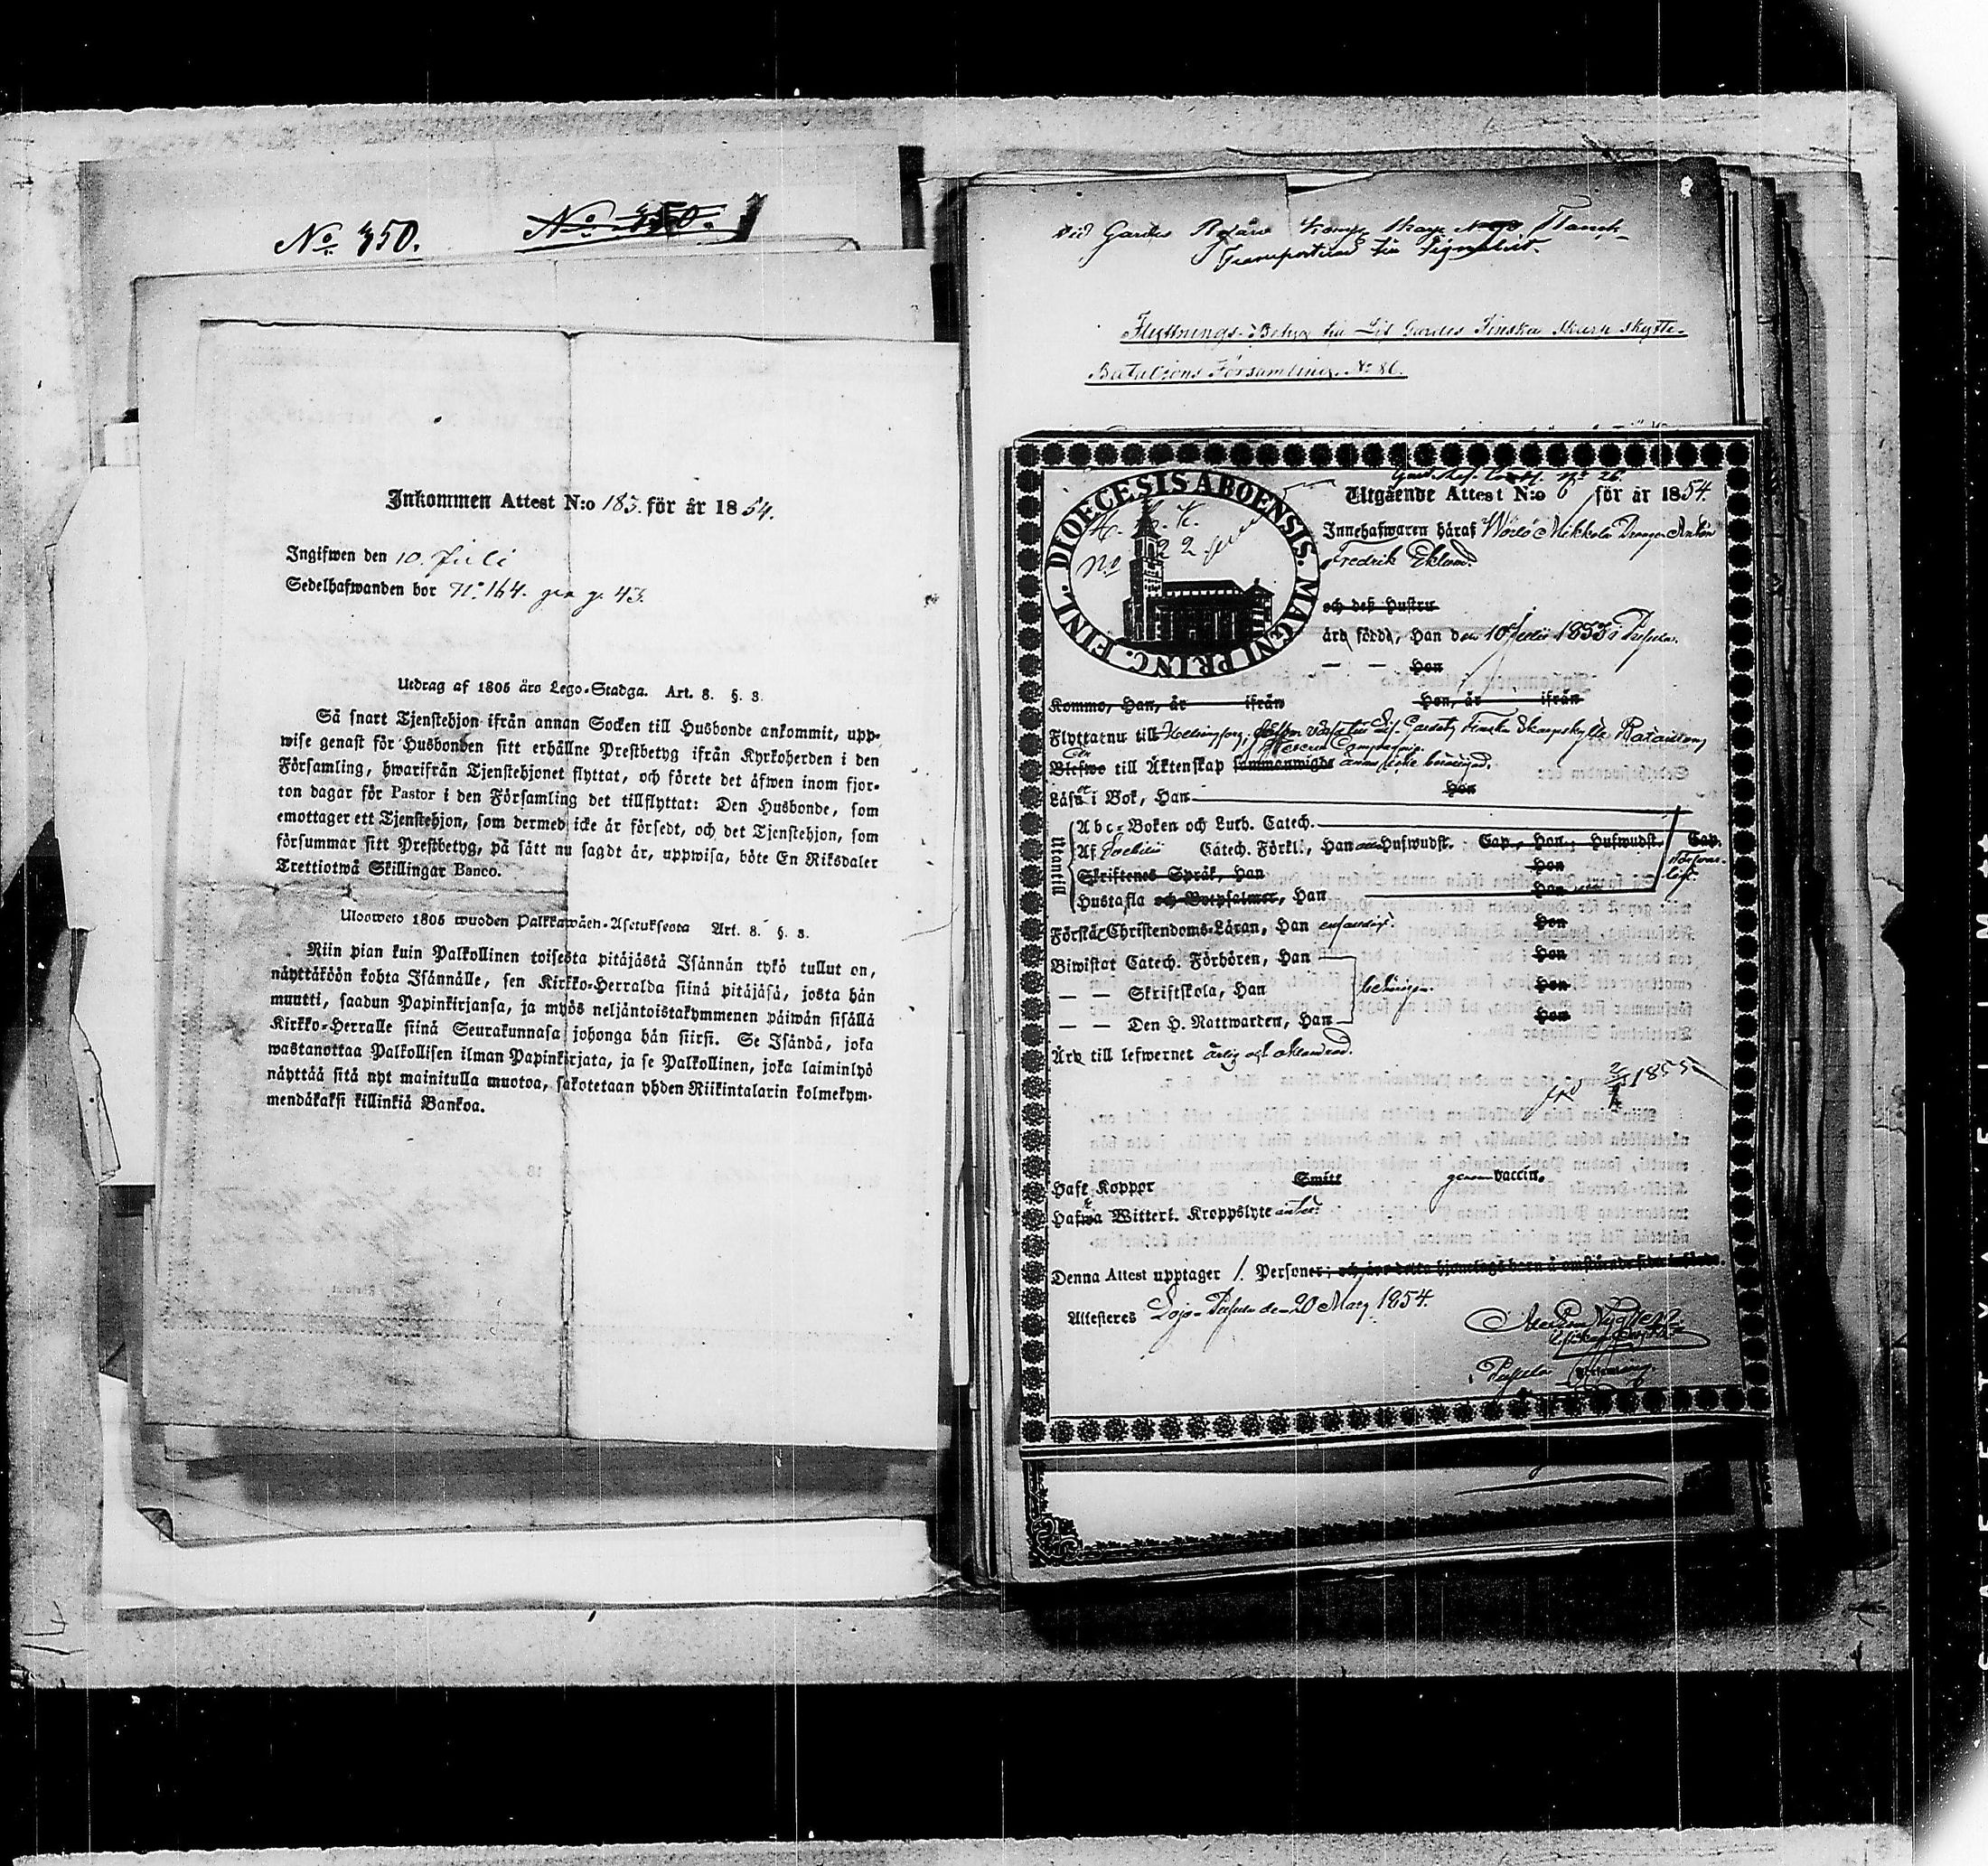 No 350.
No 350.
Inkommen Attest N:o 183. för år 1854.
Ingifwen den 10 Juli
Sedelhafwanden bor No 164. 43.
Utdrag af 1805 års Lego-Stadga. Art. 8. §. 8.
Så snart Tjenstehjon ifrån annan Socken till Husbonde ankommit, upp-
wise genast för Husbonden sitt erhållne Prestbetyg ifrån Kyrkoherden i den
Församling, hwarifrån Tjenstehjonet flyttat, och förete det äfwen inom fjor-
ton dagar för Pastor i den Församling det tillflyttat: Den Husbonde, som
emottager ett Tjenstehjon, som dermed icke är försedt, och det Tjenstehjon, som
försummar sitt Prestbetyg, på sätt nu sagdt är, uppwisa, böte En Riksdaler
Trettiotwå Skillingar Banco.
Ulosweto 1805 wuoden Palkkawäen-Asetuksesta Art. 8. §. 8.
Niin pian kuin Palkollinen toisesta pitäjästä Isännän tykö tullut on,
näyttäköön kohta Isännälle, sen Kirkko-Herralda siinä pitäjäsä, josta hän
muutti, saadun Papinkirjansa, ja myös neljäntoistakymmenen päiwän sisällä
Kirkko-Herralle siinä Seurakunnasa johonga hän siirsi. Se Isändä, joka
wastanottaa Palkollisen ilman Papinkirjata, ja se Palkollinen, joka laiminlyö
näyttää sitä nyt mainitulla muotoa, sakotetaan yhden Riikintalarin kolmekym-
mendäkaksi killinkiä Bankoa.
Wid Gardes Reserv Komp.
Transporterad till
Flyttnings-Betyg till Lif Gardes Finska Skarp skytte-
Bataljons Församling. No 86.
DIOECESIS ABOENSIS. MAGNI PRINC. FINL.
No 22
Utgående Attest N:o 6 för år 1854.
Innehafwaren häraf Mikkola Dräng Anton
Fredrik Eklund.
och deß Hustru
äro födde, Han den 10 Julii 1833 i Pusula.
— — Hon
Kommo, Han, år ifrån Hon, år ifrån
Flyttar nu till Helsingfors, Lif Gardets Finska Skarpskytte Bataillons
Reserv Compagnie.
Blefwo till Äktenskap sammanwigde
Läsa i Bok, Han Hon
Utantill
Abc-Boken och Luth. Catech.
Af Catech. Förkl., Han Hufwudst. Cap., Hon, Hufwudst. Cap.
Skriftenes Språk, Han Hon
Hustafla och Botpsalmer, Han Hon
Förstå Christendoms-Läran, Han Hon
Biwistat Catech. Förhören, Han Hon
— — Skriftskola, Han Hon
— — Den H. Nattwarden, Han Hon
Äro till lefwernet ärlig och
1855
Haft Koppor Smitt genom vaccin.
Hafwa Witterl. Kroppslyte
Denna Attest upptager 1. Personer; och äro detta hjonelags barn å omstående sida införde.
Attesteres Lojo-Pusula den 20 Mars 1854.
Pusula